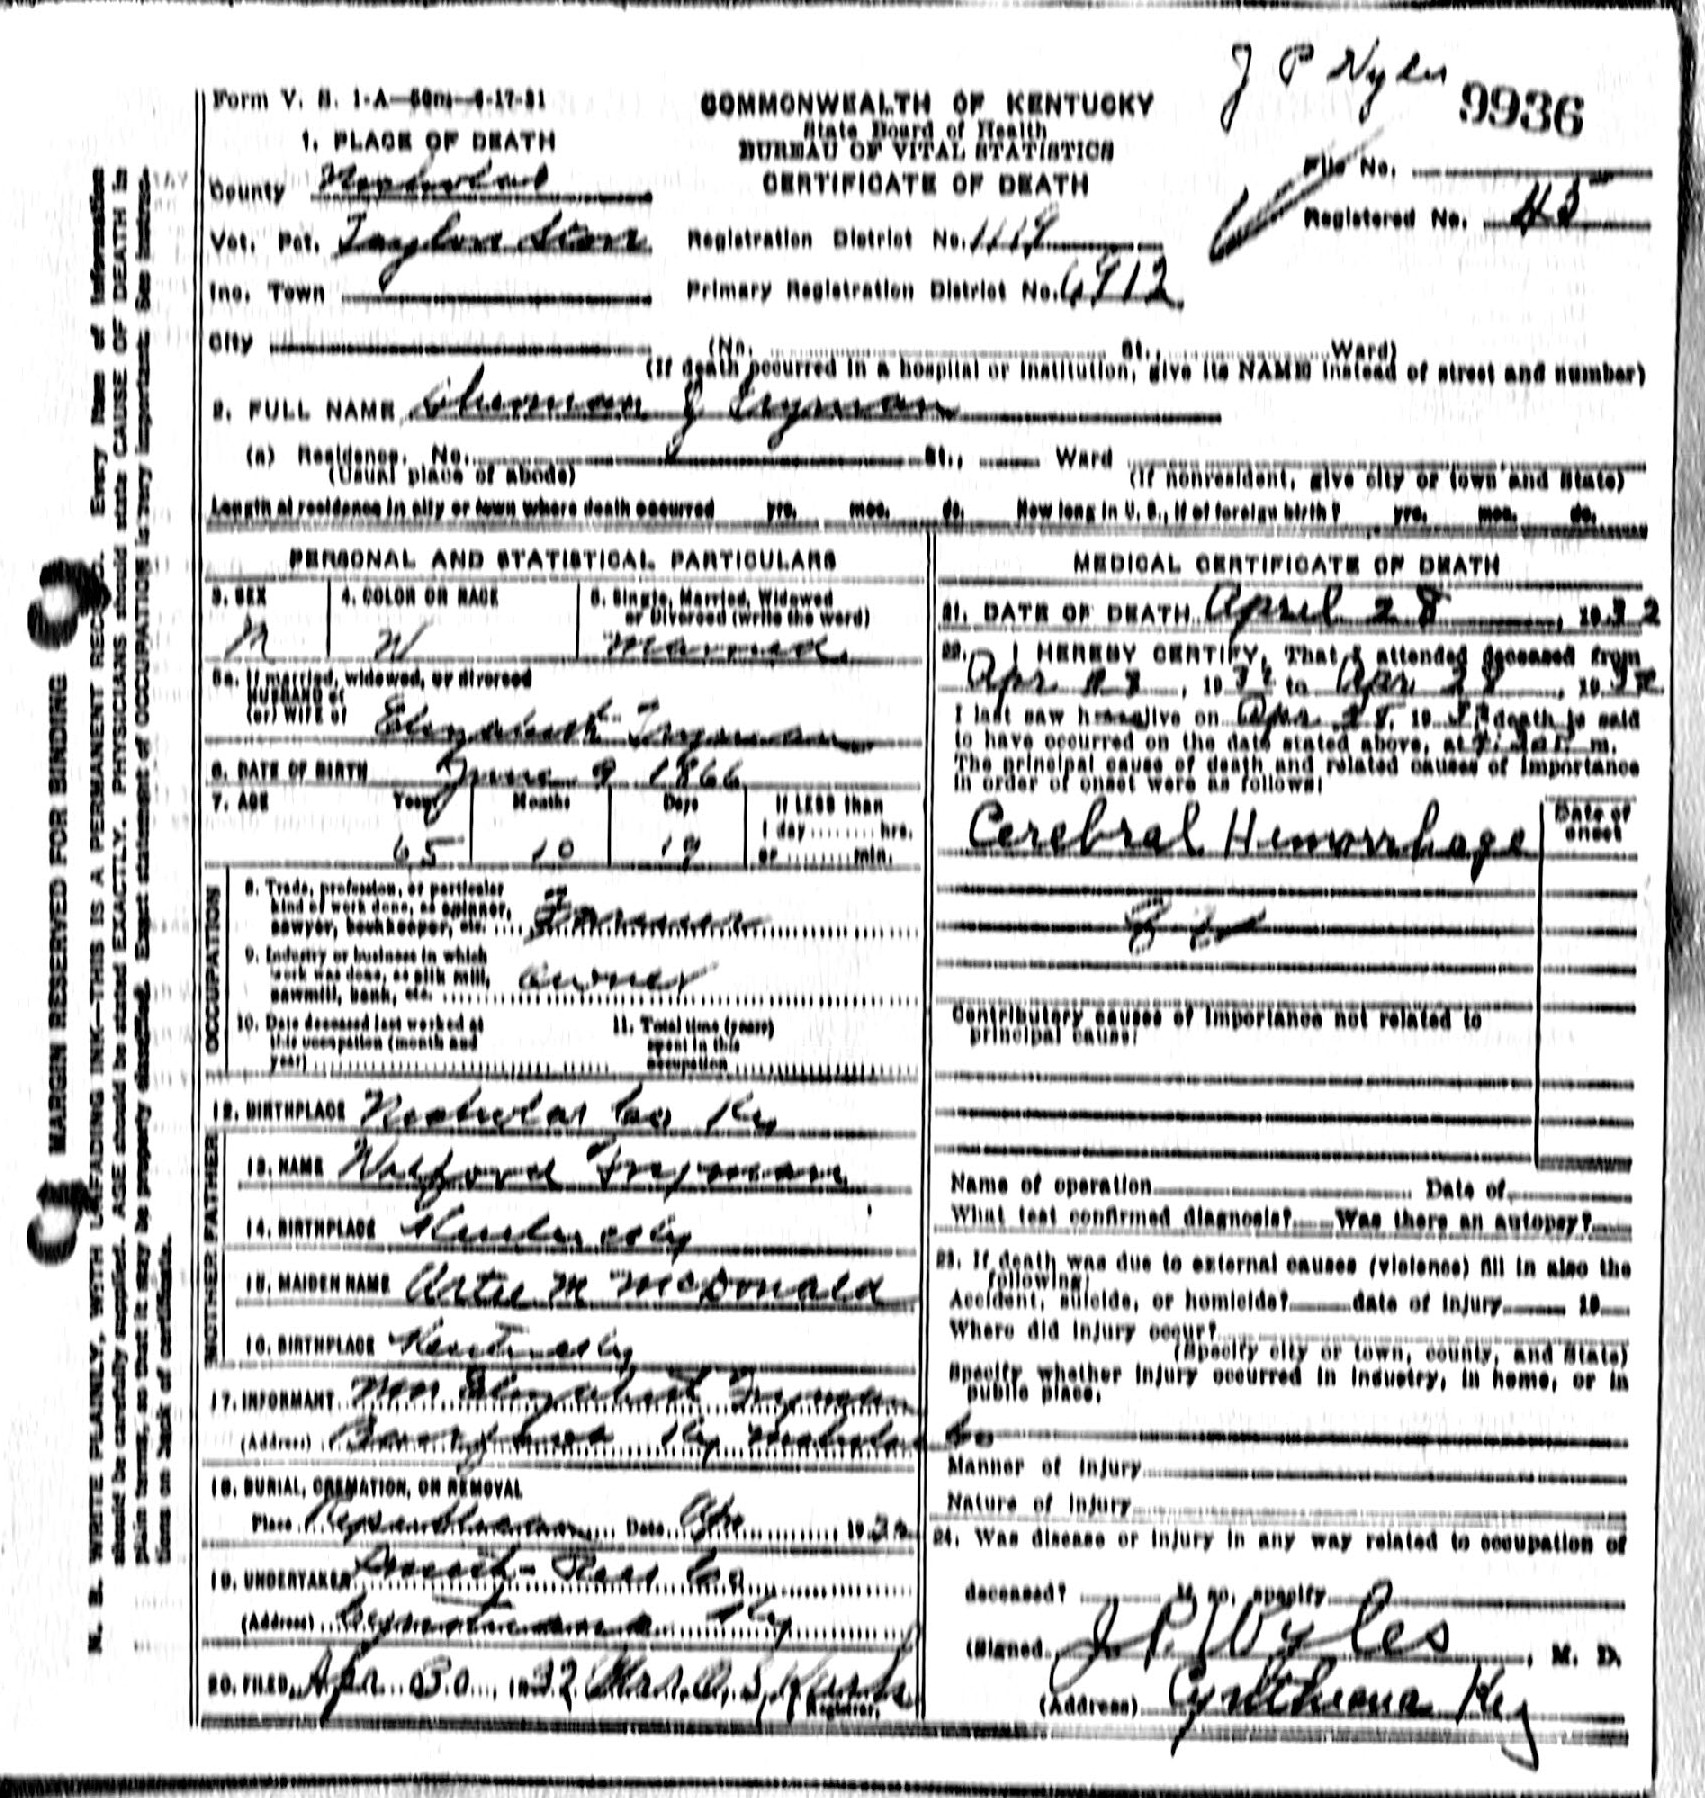 J P Wyles
9936
Form V. S. 1-A—50m—6-17-31
COMMONWEALTH OF KENTUCKY
State Board of Health
BUREAU OF VITAL STATISTICS
CERTIFICATE OF DEATH
File No.
Registered No. 45
1. PLACE OF DEATH
County Nicholas
Vot. Pct. Taylor Store
Registration District No. 1119
Inc. Town
Primary Registration District No. 6912
City
(No. St., Ward)
(If death occurred in a hospital or institution, give its NAME instead of street and number)
2. FULL NAME Sherman J Fryman
(a) Residence. No. St., Ward
(Usual place of abode)
(If nonresident, give city or town and State)
Length of residence in city or town where death occurred yrs. mos. ds. How long in U. S., if of foreign birth? yrs. mos. ds.
PERSONAL AND STATISTICAL PARTICULARS
3. SEX
M
4. COLOR OR RACE
W
5. Single, Married, Widowed
or Divorced (write the word)
Married
5a. If married, widowed, or divorced
HUSBAND of
(or) WIFE of
Elizabeth Fryman
6. DATE OF BIRTH June 9 1866
7. AGE Years Months Days If LESS than
1 day hrs.
or min.
65 10 19
OCCUPATION
8. Trade, profession, or particular
kind of work done, as spinner,
sawyer, bookkeeper, etc. Farmer
9. Industry or business in which
work was done, as silk mill,
sawmill, bank, etc. owner
10. Date deceased last worked at
this occupation (month and
year)
11. Total time (years)
spent in this
occupation
12. BIRTHPLACE Nicholas Co Ky
FATHER
13. NAME Wilford Fryman
14. BIRTHPLACE Kentucky
MOTHER
15. MAIDEN NAME Artie M McDonald
16. BIRTHPLACE Kentucky
17. INFORMANT Mrs Elizabeth Fryman
(Address) Barefoot Ky Nicholas Co
18. BURIAL, CREMATION, OR REMOVAL
Place Republican Date Apr 1932
19. UNDERTAKER Smith-Rees Co
(Address) Cynthiana Ky
20. FILED, Apr 30, 1932
Registrar.
MEDICAL CERTIFICATE OF DEATH
21. DATE OF DEATH April 28, 1932
22. I HEREBY CERTIFY, That I attended deceased from
Apr 1932 to Apr 28, 1932
I last saw h alive on Apr 28, 1932, death is said
to have occurred on the date stated above, at m.
The principal cause of death and related causes of importance
in order of onset were as follows:
Date of
onset
Cerebral Hemorrhage
Contributory causes of importance not related to
principal cause:
Name of operation Date of
What test confirmed diagnosis? Was there an autopsy?
23. If death was due to external causes (violence) fill in also the
following:
Accident, suicide, or homicide? date of injury 19
Where did injury occur?
(Specify city or town, county, and State)
Specify whether injury occurred in industry, in home, or in
public place.
Manner of injury
Nature of injury
24. Was disease or injury in any way related to occupation of
deceased? If so, specify
(Signed) J. P. Wyles, M. D.
(Address) Cynthiana Ky
MARGIN RESERVED FOR BINDING
N. B. WRITE PLAINLY, WITH UNFADING INK—THIS IS A PERMANENT RECORD. Every item of information
should be carefully supplied. AGE should be stated EXACTLY. PHYSICIANS should state CAUSE OF DEATH in
plain terms, so that it may be properly classified. Exact statement of OCCUPATION is very important. See instruc-
tions on back of certificate.